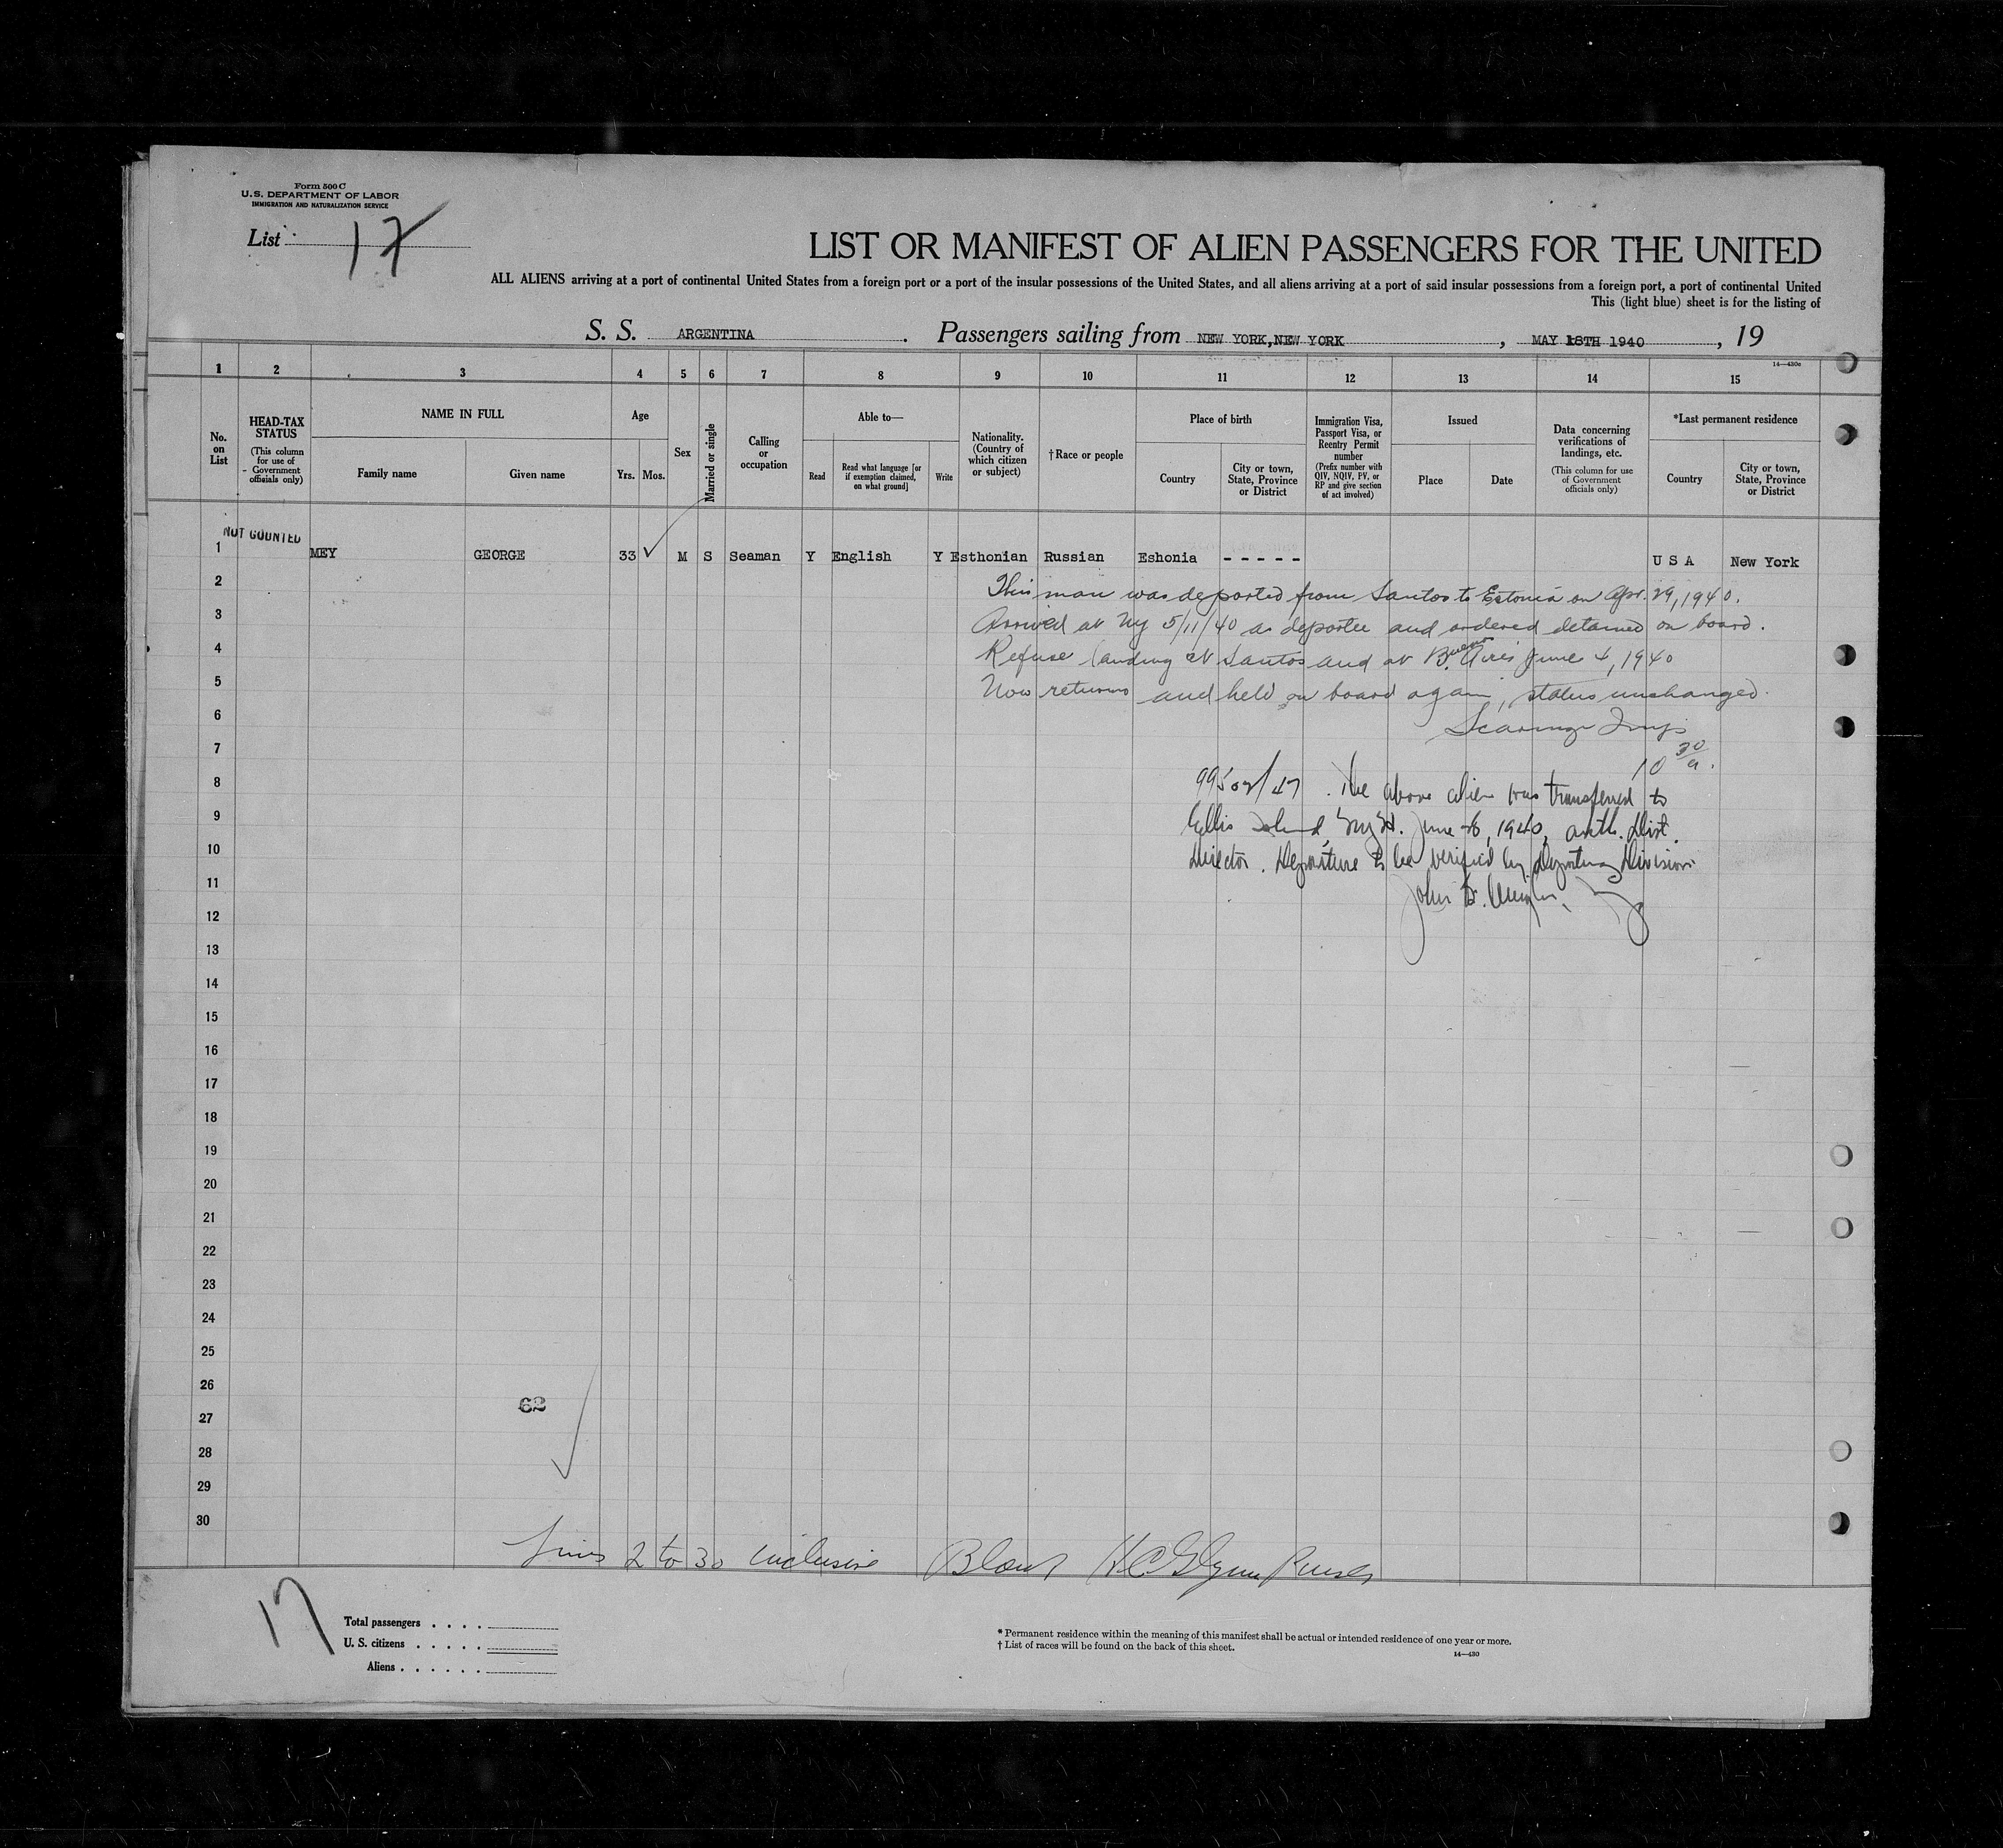 Form 500 C
U.S. DEPARTMENT OF LABOR
IMMIGRATION AND NATURALIZATION SERVICE
List 17
LIST OR MANIFEST OF ALIEN PASSENGERS FOR THE UNITED
ALL ALIENS arriving at a port of continental United States from a foreign port or a port of the insular possessions of the United States, and all aliens arriving at a port of said insular possessions from a foreign port, a port of continental United
This (light blue) sheet is for the listing of
S. S. ARGENTINA. Passengers sailing from NEW YORK, NEW YORK, MAY 18TH 1940, 19
14—430c
1 2 3 4 5 6 7 8 9 10 11 12 13 14 15
No. on List
HEAD-TAX STATUS
(This column for use of Government officials only)
NAME IN FULL
Family name
Given name
Age
Yrs. Mos.
Sex
Married or single
Calling or occupation
Able to—
Read
Read what language [or if exemption claimed, on what ground]
Write
Nationality. (Country of which citizen or subject)
†Race or people
Place of birth
Country
City or town, State, Province or District
Immigration Visa, Passport Visa, or Reentry Permit number
(Prefix number with QIV, NQIV, PV, or RP and give section of act involved)
Issued
Place
Date
Data concerning verifications of landings, etc.
(This column for use of Government officials only)
*Last permanent residence
Country
City or town, State, Province or District
NOT COUNTED
1 MEY GEORGE 33 M S Seaman Y English Y Esthonian Russian Eshonia - - - - - U S A New York
2 This man was deported from Santos to Estonia on Apr. 29, 1940.
3 Arrived at NY 5/11/40 as deportee and ordered detained on board.
4 Refuse landing at Santos and at Buenos Aires June 4, 1940
5 Now returns and held on board again, status unchanged.
6
7 10 30 a.
8 99502/47. The above alien was transferred to
9 Ellis Island, June 26, 1940, auth. Dist.
10 Director. Departure to be verified by Deporting Division
11 John
12
13
14
15
16
17
18
19
20
21
22
23
24
25
26
62
27
28
29
30
Lines 2 to 30 inclusive Blank
17
Total passengers . . . .
U. S. citizens . . . . .
Aliens . . . . . .
* Permanent residence within the meaning of this manifest shall be actual or intended residence of one year or more.
† List of races will be found on the back of this sheet.
14—430